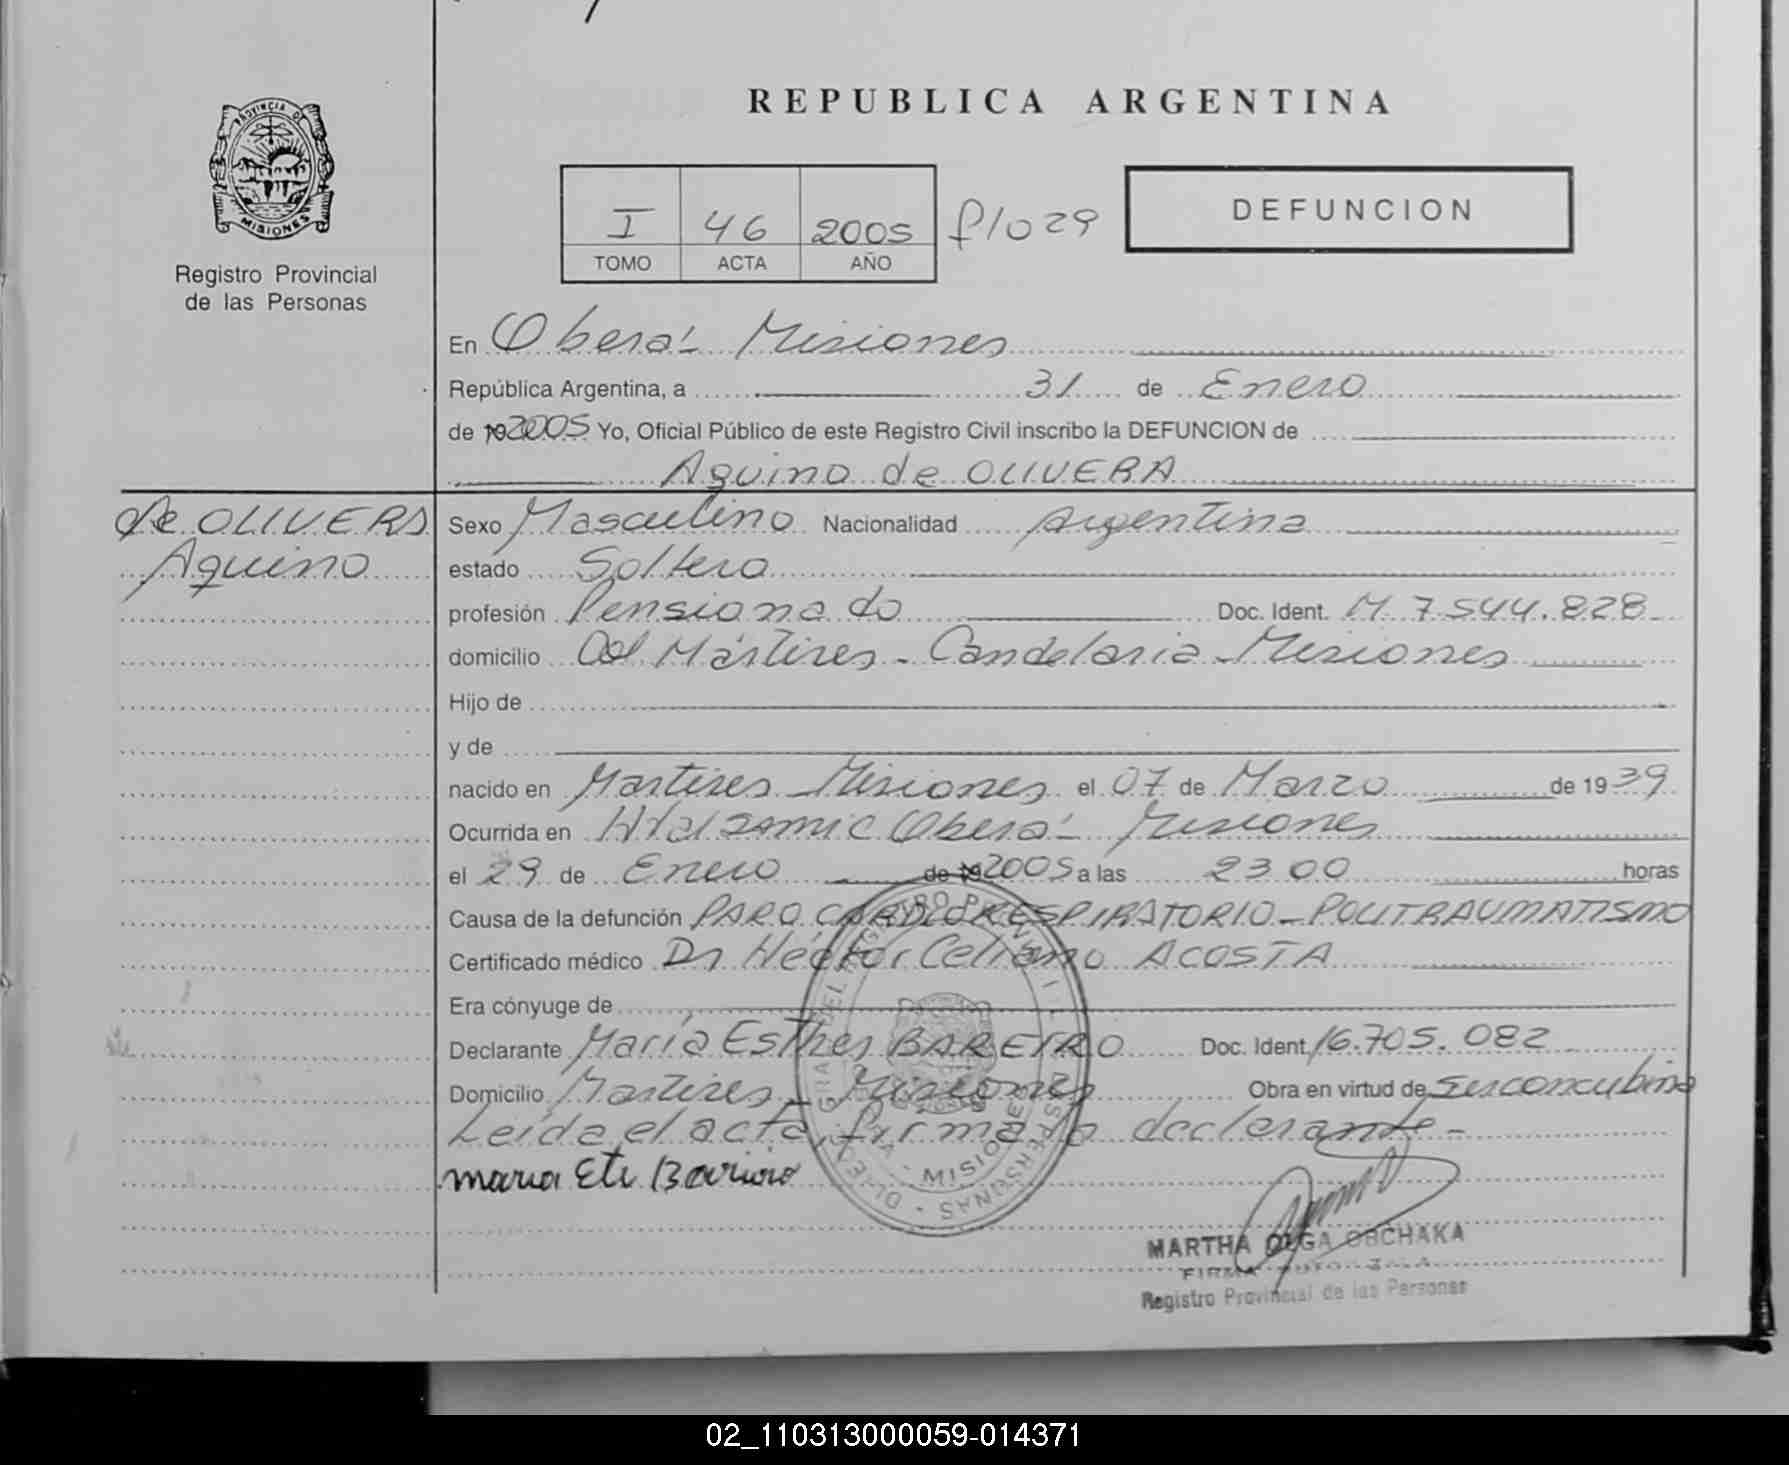 REPUBLICA ARGENTINA
PROVINCIA DE
MISIONES
Registro Provincial
de las Personas
I 46 2005 f/o 29
TOMO ACTA AÑO
DEFUNCION
En Oberá - Misiones
República Argentina, a 31 de Enero
de 19 2005 Yo, Oficial Público de este Registro Civil inscribo la DEFUNCION de
Aquino de OLIVERA
de OLIVERA
Aquino
Sexo Masculino Nacionalidad Argentina
estado Soltero
profesión Pensionado Doc. Ident. M 7.544.828
domicilio Col Mártires - Candelaria - Misiones
Hijo de
y de
nacido en Martires - Misiones el 07 de Marzo de 1939
Ocurrida en Htal Samic Oberá - Misiones
el 29 de Enero de 19 2005 a las 23 00 horas
Causa de la defunción PARO CARDIORESPIRATORIO - POLITRAUMATISMO
Certificado médico Dr Héctor Celiano ACOSTA
Era cónyuge de
Declarante María Esther BAREIRO Doc. Ident. 16.705.082
Domicilio Martires - Misiones Obra en virtud de ser concubina
Leída el acta, firma la declarante -
maria
MARTHA OLGA OBCHAKA
FIRMA
Registro Provincial de las Personas
02_110313000059-014371